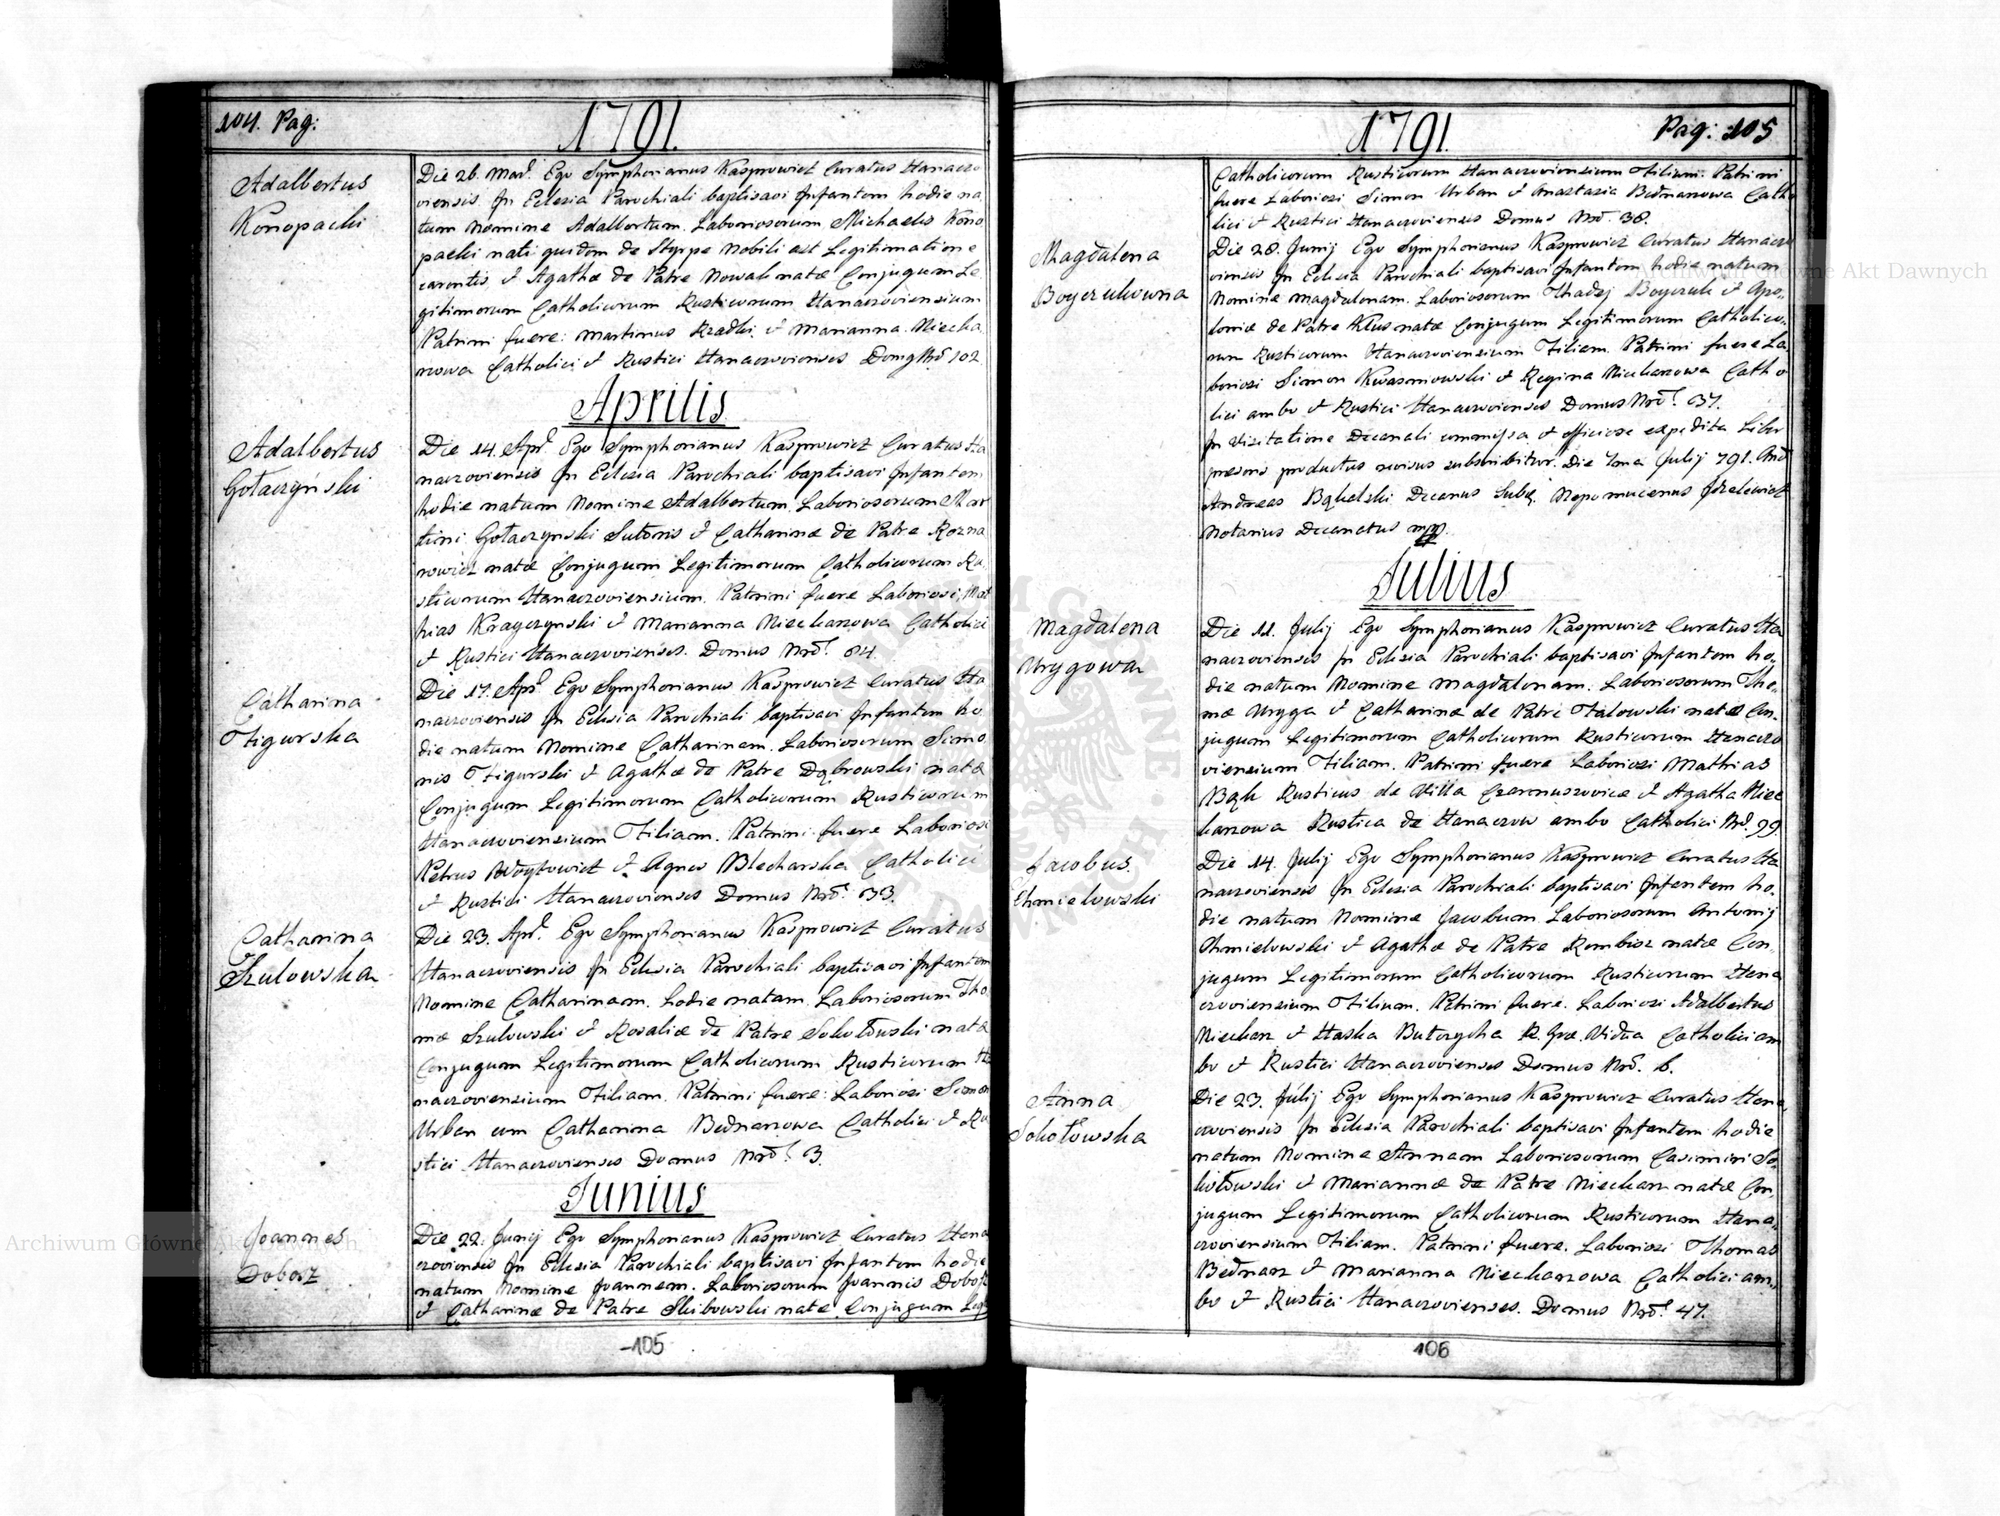 104. Pag:
1791.
Adalbertus
Konopacki
Die 26. Mar. Ego Symphorianus Kasprowicz Curatus Hanaczo
viensis In Eclesia Parochiali baptisavi Infantem hodie na
tum Nomine Adalbertum. Laboriosorum Michaelis Kono
packi nati quidem de Styrpe Nobili ast Legitimatione
carentis et Agathæ de Patre Nowak natæ Conjugum Le
gitimorum Catholicorum Rusticorum Hanaczoviensium
Patrini fuere: Martinus Rzadki et Marianna Miecha
rzowa Catholici et Rustici Hanaczovienses Domg Nrō 102.
Aprilis
Adalbertus
Gołaczyński
Die 14. Apr. Ego Symphorianus Kasprowicz Curatus Ha
naczoviensis In Eclesia Parochiali baptisavi Infantem
hodie natum Nomine Adalbertum. Laboriosorum Mar
tini Gołaczynski Sutoris et Catharinæ de Patre Rozna
rowicz natæ Conjugum Legitimorum Catholicorum Ru
sticorum Hanaczoviensium. Patrini fuere Laboriosi Mat
hias Krayczynski et Marianna Miecharzowa Catholici
et Rustici Hanaczovienses. Domus Nrō. 84.
Catharina
Figurska
Die 17. Apr. Ego Symphorianus Kasprowicz Curatus Ha
naczoviensis In Eclesia Parochiali baptisavi Infantem ho
die natum Nomine Catharinam. Laboriosorum Simo
nis Figurski et Agathæ de Patre Dąbrowski natæ
Conjugum Legitimorum Catholicorum Rusticorum
Hanaczoviensium Filiam. Patrini fuere Laboriosi
Petrus Woytowicz et Agnes Blecharska Catholici
et Rustici Hanaczovienses Domus Nrō. 33.
Catharina
Szulowska
Die 23. Apr. Ego Symphorianus Kasprowicz Curatus
Hanaczoviensis In Eclesia Parochiali baptisavi Infantem
Nomine Catharinam. hodie natam. Laboriosorum Tho
mæ Szulowski et Rosaliæ de Patre Sokołowski natæ
Conjugum Legitimorum Catholicorum Rusticorum Ha
naczoviensium Filiam. Patrini fuere: Laboriosi Simon
Urban cum Catharina Bednarzowa Catholici et Ru
stici Hanaczovienses Domus Nrō. 3.
Junius
Joannes
Dobosz
Die 22. Junij Ego Symphorianus Kasprowicz Curatus Hana
czoviensis In Eclesia Parochiali baptisavi Infantem hodie
natum Nomine Joannem. Laboriosorum Joannis Dobosz
et Catharinæ de Patre Skibowski natæ Conjugum Legi
105
1791.
Pag: 105
Catholicorum Rusticorum Hanaczoviensium Filium. Patrini
fuere Laboriosi Simon Urban et Anastasia Bednarzowa Catho
lici et Rustici Hanaczovienses Domus Nrō. 38.
Magdalena
Boyczukowna
Die 28. Junij Ego Symphorianus Kasprowicz Curatus Hanaczo
viensis In Eclesia Parochiali baptisavi Infantem hodie natum
Nomine Magdalenam. Laboriosorum Thadej Boyczuk et Apo-
loniæ de Patre Klus natæ Conjugum Legitimorum Catholico-
rum Rusticorum Hanaczoviensium Filiam. Patrini fuere La
boriosi Simon Kwasniowski et Regina Miecharzowa Catho
lici ambo et Rustici Hanaczovienses Domus Nrō. 37.
In Visitatione Decanali commissa et officiose expedita Liber
presens productus revisus subscribitur. Die 7ma Julij 791. Anō
Andreas Bąkalski Decanus Subę. Nepomucenus
Notarius Decanatus mpp.
Julius
Magdalena
Urygowa
Die 11. Julij Ego Symphorianus Kasprowicz Curatus Ha
naczoviensis In Eclesia Parochiali baptisavi Infantem ho-
die natum Nomine Magdalenam. Laboriosorum Tho-
mæ Uryga et Catharinæ de Patre Falowski natæ Con-
jugum Legitimorum Catholicorum Rusticorum Hanaczo
viensium Filiam. Patrini fuere Laboriosi Mathias
Bąk Rusticus de Villa Czarnuszovice et Agatha Miec
harzowa Rustica de Hanaczow ambo Catholici Nrō. 99.
Jacobus
Chmielowski
Die 14. Julij Ego Symphorianus Kasprowicz Curatus Ha
naczoviensis In Eclesia Parochiali baptisavi Infantem ho-
die natum Nomine Jacobum. Laboriosorum Antonij
Chmielowski et Agathæ de Patre Rembisz natæ Con-
jugum Legitimorum Catholicorum Rusticorum Hana
czoviensium Filium. Patrini fuere. Laboriosi Adalbertus
Miecharz et Haska Butrycha R. Græ. Vidua Catholici am
bo et Rustici Hanaczovienses Domus Nrō. 6.
Anna
Sokołowska
Die 23. Julij Ego Symphorianus Kasprowicz Curatus Hana
czoviensis In Eclesia Parochiali baptisavi Infantem hodie
natum Nomine Annam Laboriosorum Casimiri So-
kołowski et Mariannæ de Patre Miecharz natæ Con-
jugum Legitimorum Catholicorum Rusticorum Hana-
czoviensium Filiam. Patrini fuere. Laboriosi Thomas
Bednarz et Marianna Miecharzowa Catholici am-
bo et Rustici Hanaczovienses. Domus Nrō. 47.
106
Archiwum Główne Akt Dawnych
Archiwum Główne Akt Dawnych